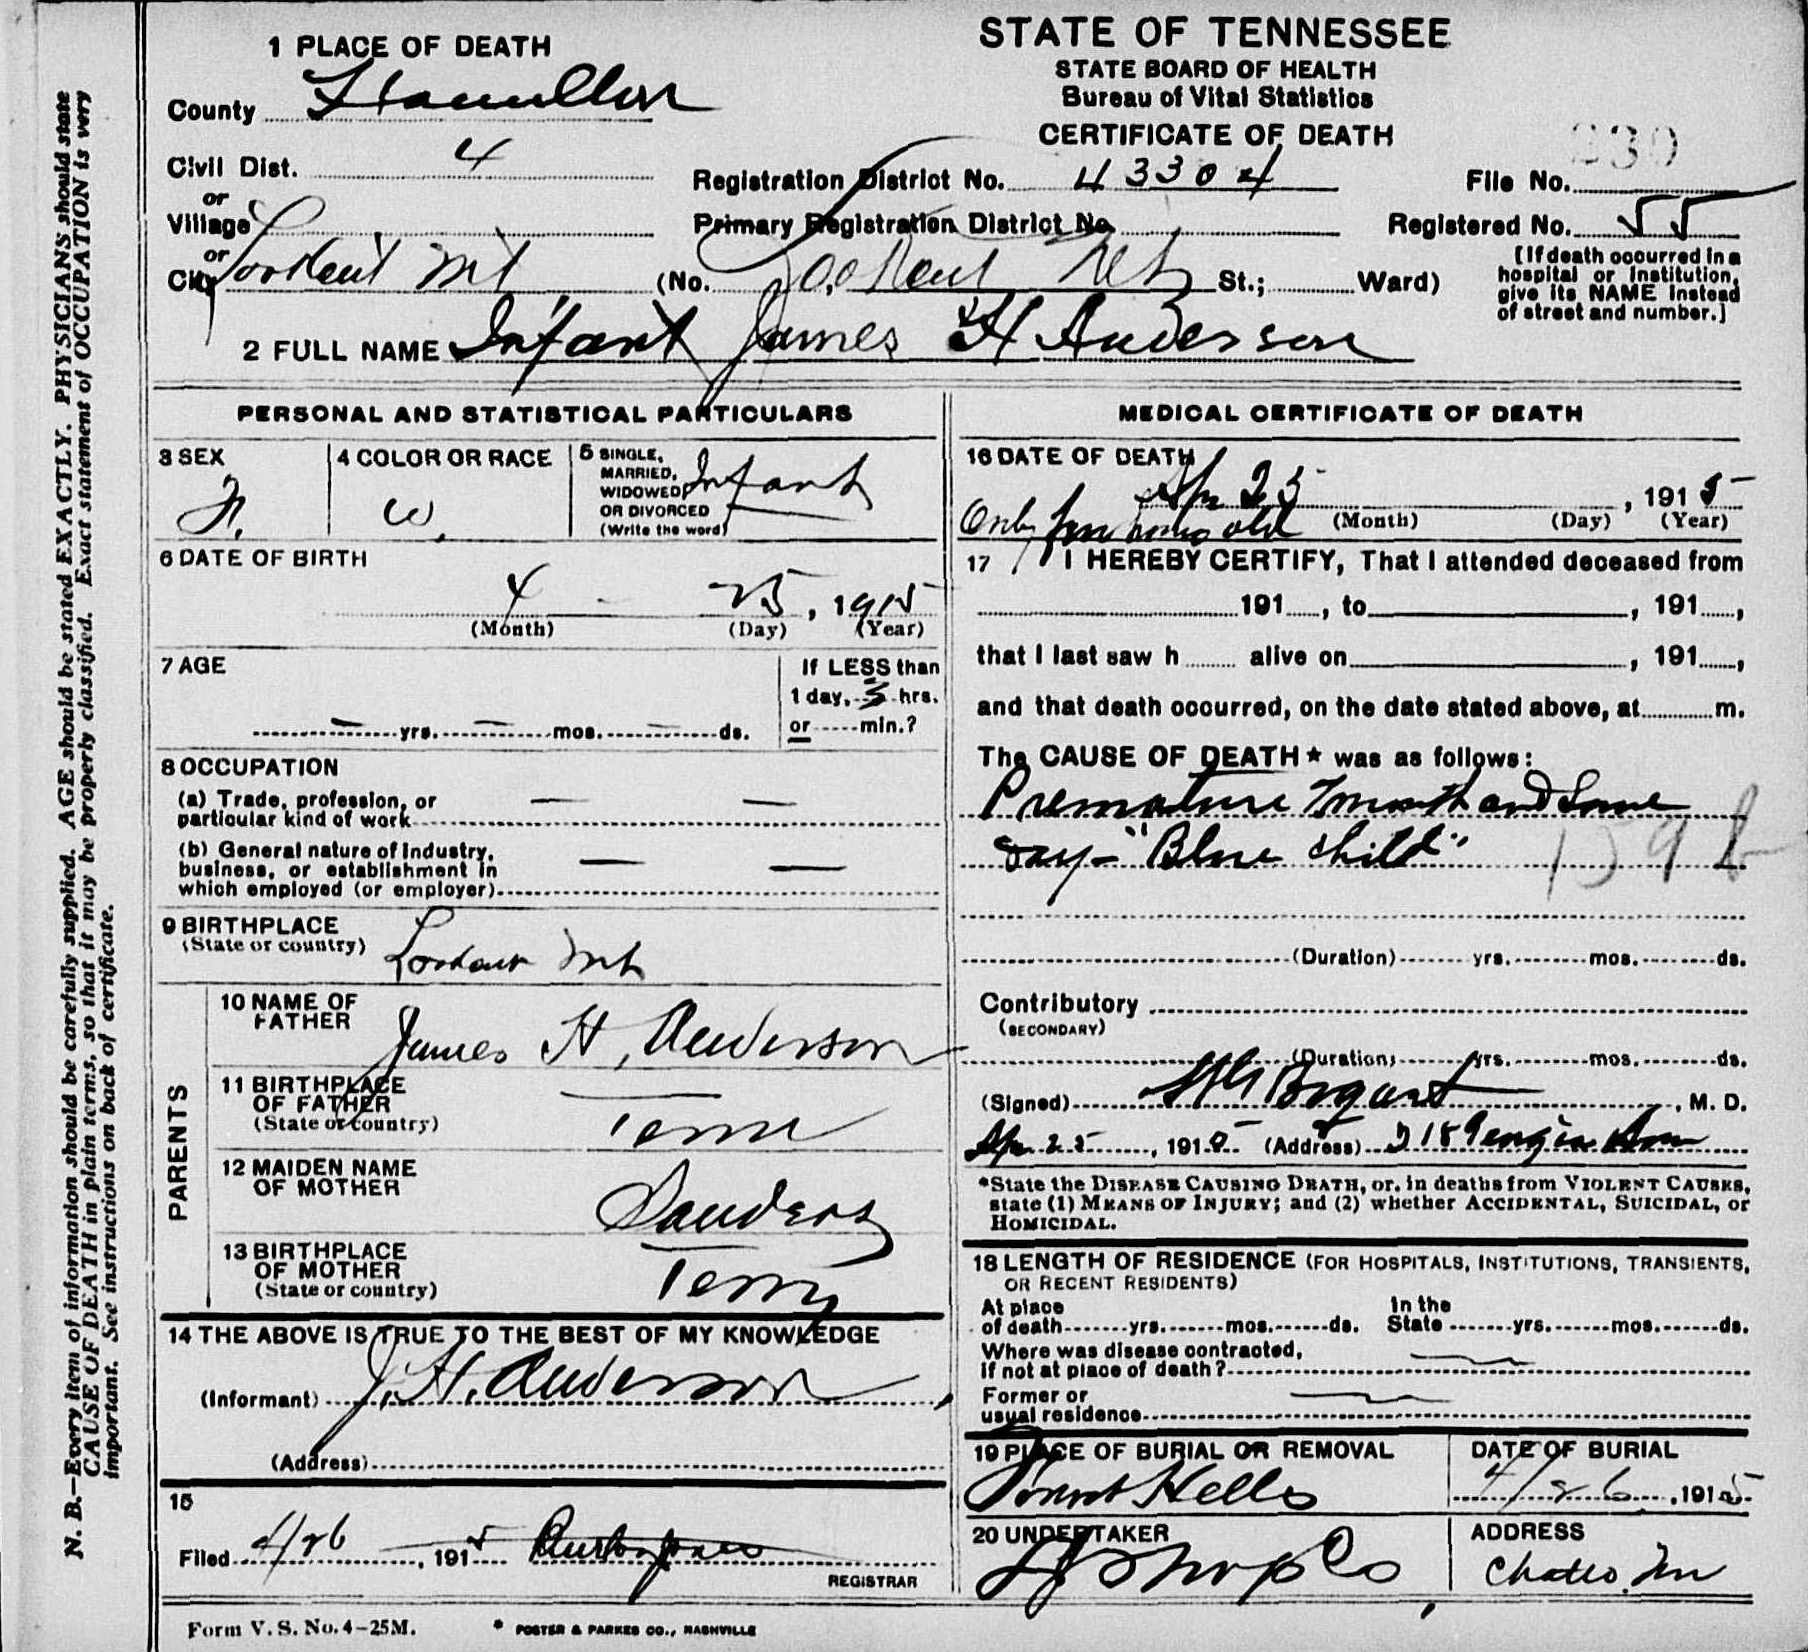 STATE OF TENNESSEE
STATE BOARD OF HEALTH
Bureau of Vital Statistics
CERTIFICATE OF DEATH
1 PLACE OF DEATH
County Hamilton
Civil Dist. 4
or
Village
or
City Lookout Mt (No. Lookout Mt St.; Ward)
Registration District No. 43304
Primary Registration District No.
File No. 230
Registered No. 55
[If death occurred in a
hospital or institution,
give its NAME instead
of street and number.]
2 FULL NAME Infant James H Anderson
PERSONAL AND STATISTICAL PARTICULARS
3 SEX
4 COLOR OR RACE
W.
5 SINGLE,
MARRIED,
WIDOWED
OR DIVORCED
(Write the word)
Infant
6 DATE OF BIRTH
4 - 25, 1915
(Month) (Day) (Year)
7 AGE
— yrs. — mos. — ds.
If LESS than
1 day, 3 hrs.
or min.?
8 OCCUPATION
(a) Trade, profession, or
particular kind of work — —
(b) General nature of industry,
business, or establishment in
which employed (or employer) — —
9 BIRTHPLACE
(State or country) Lookout Mt
PARENTS
10 NAME OF
FATHER James H. Anderson
11 BIRTHPLACE
OF FATHER
(State or country) Tenn
12 MAIDEN NAME
OF MOTHER Sanders
13 BIRTHPLACE
OF MOTHER
(State or country) Tenn
14 THE ABOVE IS TRUE TO THE BEST OF MY KNOWLEDGE
(Informant) J. H. Anderson
(Address)
15
Filed 4/26, 1915
REGISTRAR
MEDICAL CERTIFICATE OF DEATH
16 DATE OF DEATH
Ap 25, 1915
(Month) (Day) (Year)
Only few hours old
17 I HEREBY CERTIFY, That I attended deceased from
191, to, 191,
that I last saw h alive on, 191,
and that death occurred, on the date stated above, at m.
The CAUSE OF DEATH* was as follows:
Premature 7 month and some
day - "Blue child"
159
(Duration) yrs. mos. ds.
Contributory
(SECONDARY)
(Duration) yrs. mos. ds.
(Signed) Bogart, M. D.
Ap 25, 1915 (Address)
*State the DISEASE CAUSING DEATH, or, in deaths from VIOLENT CAUSES,
state (1) MEANS OF INJURY; and (2) whether ACCIDENTAL, SUICIDAL, or
HOMICIDAL.
18 LENGTH OF RESIDENCE (FOR HOSPITALS, INSTITUTIONS, TRANSIENTS,
OR RECENT RESIDENTS)
At place
of death yrs. mos. ds.
In the
State yrs. mos. ds.
Where was disease contracted,
if not at place of death?
Former or
usual residence
19 PLACE OF BURIAL OR REMOVAL
Forest Hills
DATE OF BURIAL
4/26, 1915
20 UNDERTAKER
Sharp Co
ADDRESS
Chatta. Tenn
N. B.—Every item of information should be carefully supplied. AGE should be stated EXACTLY. PHYSICIANS should state
CAUSE OF DEATH in plain terms, so that it may be properly classified. Exact statement of OCCUPATION is very
important. See instructions on back of certificate.
Form V. S. No. 4-25M.
POSTER & PARKES CO., NASHVILLE